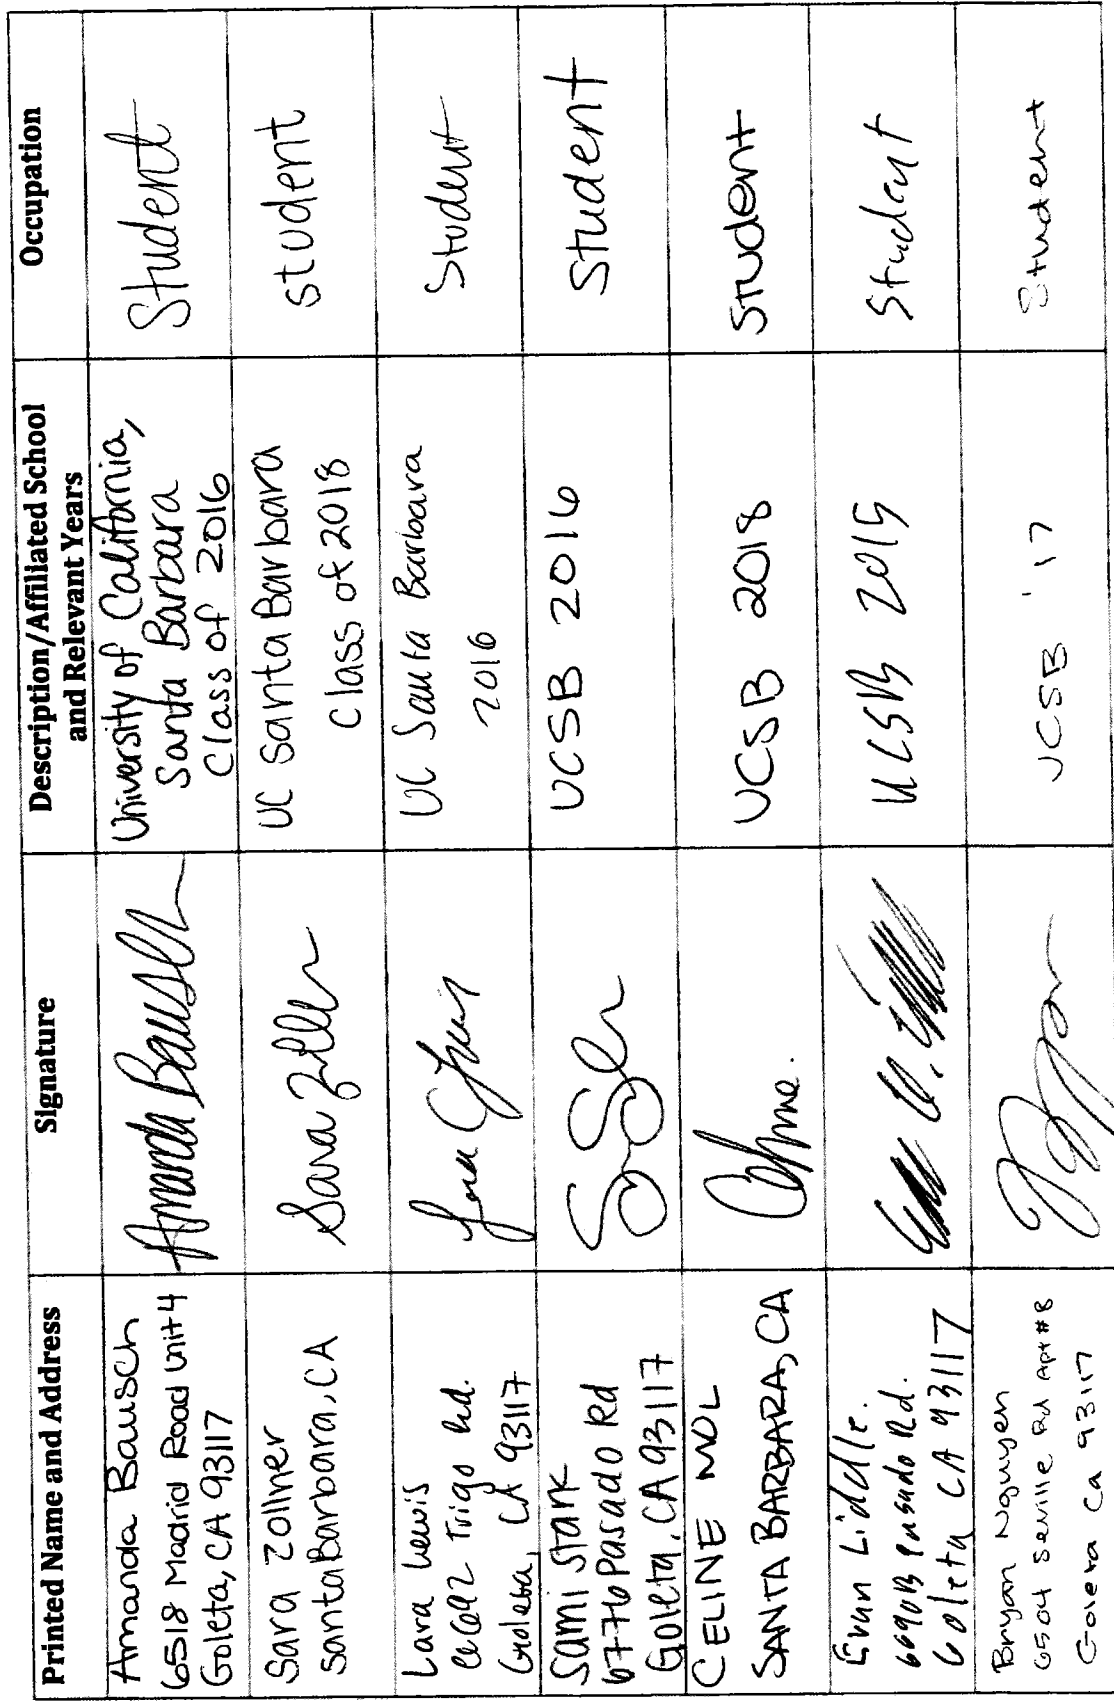 Printed Name and Address
Signature
Description/Affiliated School
and Relevant Years
Occupation
Amanda Bausch
6518 Madrid Road Unit 4
Goleta, CA 93117
Amanda Bausch
University of California,
Santa Barbara
Class of 2016
Student
Sara Zollner
Santa Barbara, CA
Sara Zollner
UC Santa Barbara
Class of 2018
student
Lara Lewis
Trigo Rd.
Goleta, CA 93117
UC Santa Barbara
2016
Student
Sami Stark
6776 Pasado Rd
Goleta, CA 93117
UCSB 2016
Student
CELINE MOL
SANTA BARBARA, CA
Celine.
UCSB 2018
Student
Evan Liddle.
6690B Pasado Rd.
Goleta CA 93117
UCSB 2015
Student
Bryan Nguyen
6504 Seville Rd Apt #8
Goleta Ca 93117
UCSB '17
Student